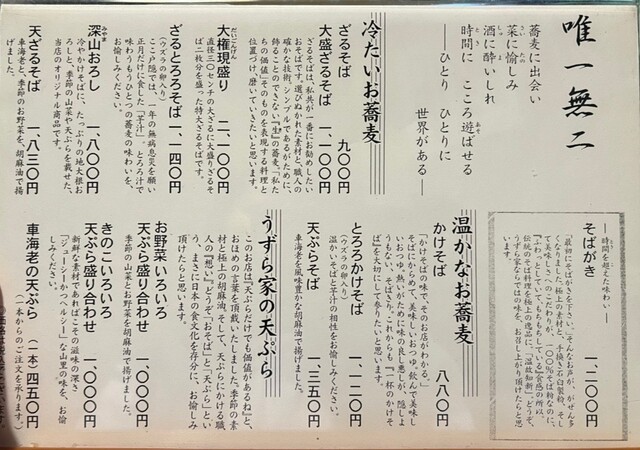 唯一無二
蕎麦に出会い
菜に愉しみ
酒に酔いしれ
時間に こころ遊ばせる
―ひとり ひとりに
世界がある―
冷たいお蕎麦
ざるそば 九〇〇円
大盛ざるそば 一、二〇〇円
ざるそばは、私共が一番にお勧めしたい
おそばです。選びぬかれた素材と、職人の
確かな技術。シンプルであるために、
飾ることのできない「生」の蕎麦。「私た
ちの価値」そのものを表現する料理と
位置づけ、磨いていきたいと思います。
大権現盛り 二、一〇〇円
直径三〇センチの大ざるに大盛りざるそ
ば二枚分を盛った特大ざるそばです。
ざるとろろそば 一、一四〇円
(ウズラの卵入り)
ここ戸隠では、一年の無病息災を願い
正月だけに食した「芋汁」。とろろ汁で
味わうもうひとつの蕎麦の味わいを、
お愉しみください。
深山おろし 一、八〇〇円
冷やかけそばに、たっぷりの地大根お
ろしと、季節の山菜や天ぷらを載せた、
当店のオリジナル商品です。
天ざるそば 一、八三〇円
車海老と、季節のお野菜を、胡麻油で揚
げました。
そばがき 一、二〇〇円
―時間を超えた味わい―
「最初にそばがきを下さい。」そんなお声が、がぜん多
くなりました。極上の素材と、手挽きの石臼製粉、そし
て美味しさへのこだわりが、一〇〇%そば粉なのに、
「ふわっ」としていて、もちもちしている」食感の所以。
伝統のそば料理を極上の逸品に。「温故知新」。どうぞ、
うずら家ならではの味を、お召し上がり頂けたらと思
います。
温かなお蕎麦
かけそば 八八〇円
「かけそばの味で、そのお店がわかる。」
そばにからめて、美味しいおつゆ。飲んで美味し
いおつゆ。熱いがために味の良し悪しが、隠しよ
うもない、そばきり。これからも「一杯のかけそ
ば」を大切にして参りたいと思います。
とろろかけそば 一、一二〇円
(ウズラの卵入り)
温かいそばと芋汁の相性をお愉しみください。
天ぷらそば 一、三五〇円
車海老を風味豊かな胡麻油で揚げました。
うずら家の天ぷら
このお店は『天ぷらだけでも価値があるね』と、
おほめの言葉を頂戴いたしました。季節の素
材と極上の胡麻油。そして、天ぷらにかける職
人の『想い』。どうぞ『おそばと天ぷら』とい
う、まさに日本の食文化を存分に、お愉しみ
頂けたらと思います。
お野菜いろいろ
天ぷら盛り合わせ 一、〇〇〇円
季節の山菜とお野菜を胡麻油で揚げました。
きのこいろいろ
天ぷら盛り合わせ 一、〇〇〇円
新鮮な素材であればこその滋味の深さ
「ジューシーかつヘルシー」な山里の味を、お愉
しみください。
車海老の天ぷら (一本)四五〇円
(一本からのご注文を承ります。)